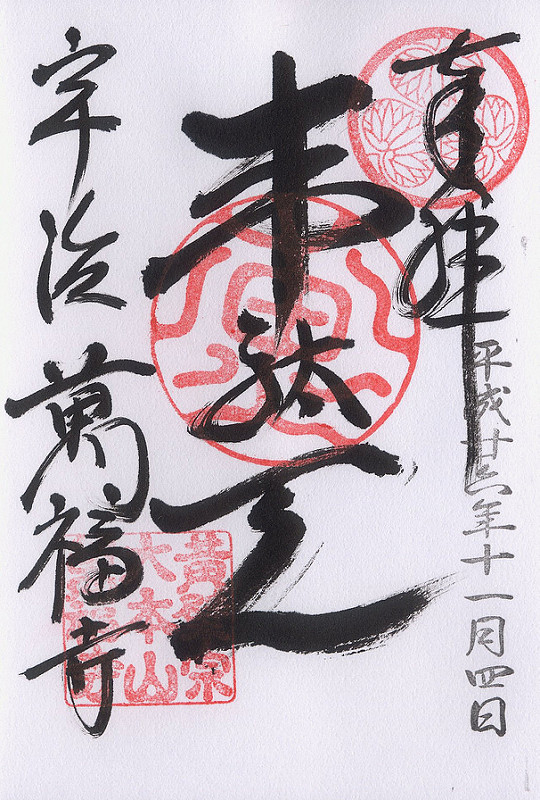 奉拝
平成廿六年十一月四日
韋駄天
宇治
萬福寺
黄檗宗
大本山
萬福寺